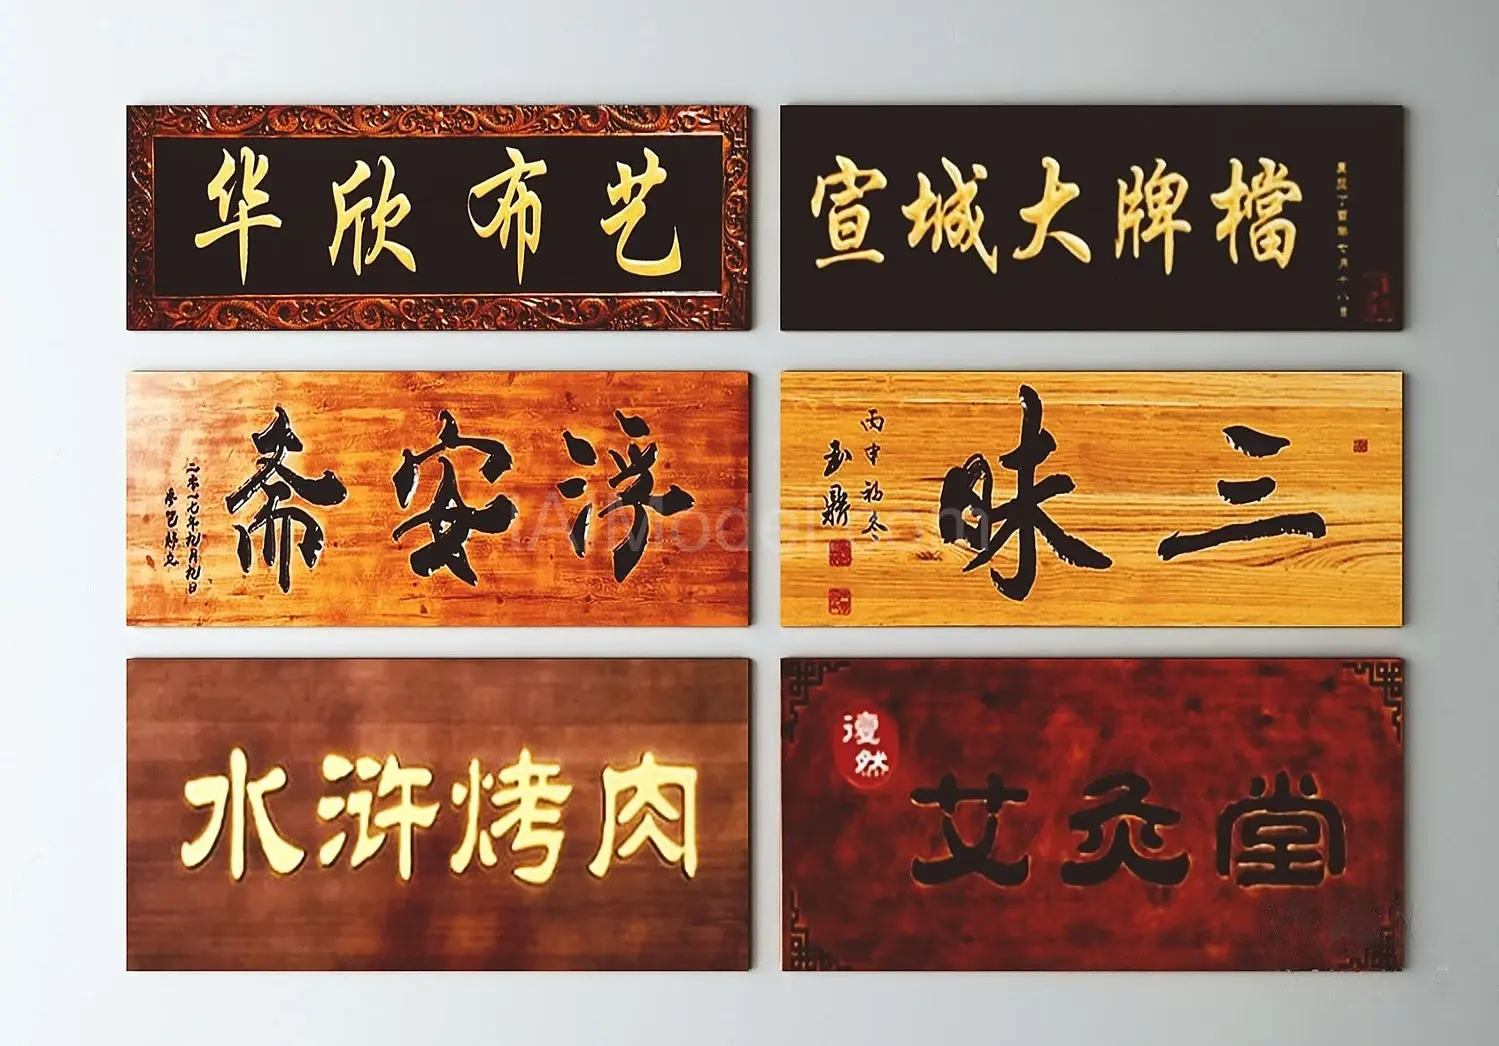 华欣布艺
宣城大牌檔
浮安斋
二零一七年九月九日
三味
丙申初冬
玉鼎
水浒烤肉
然
艾灸堂
IAIModel.com